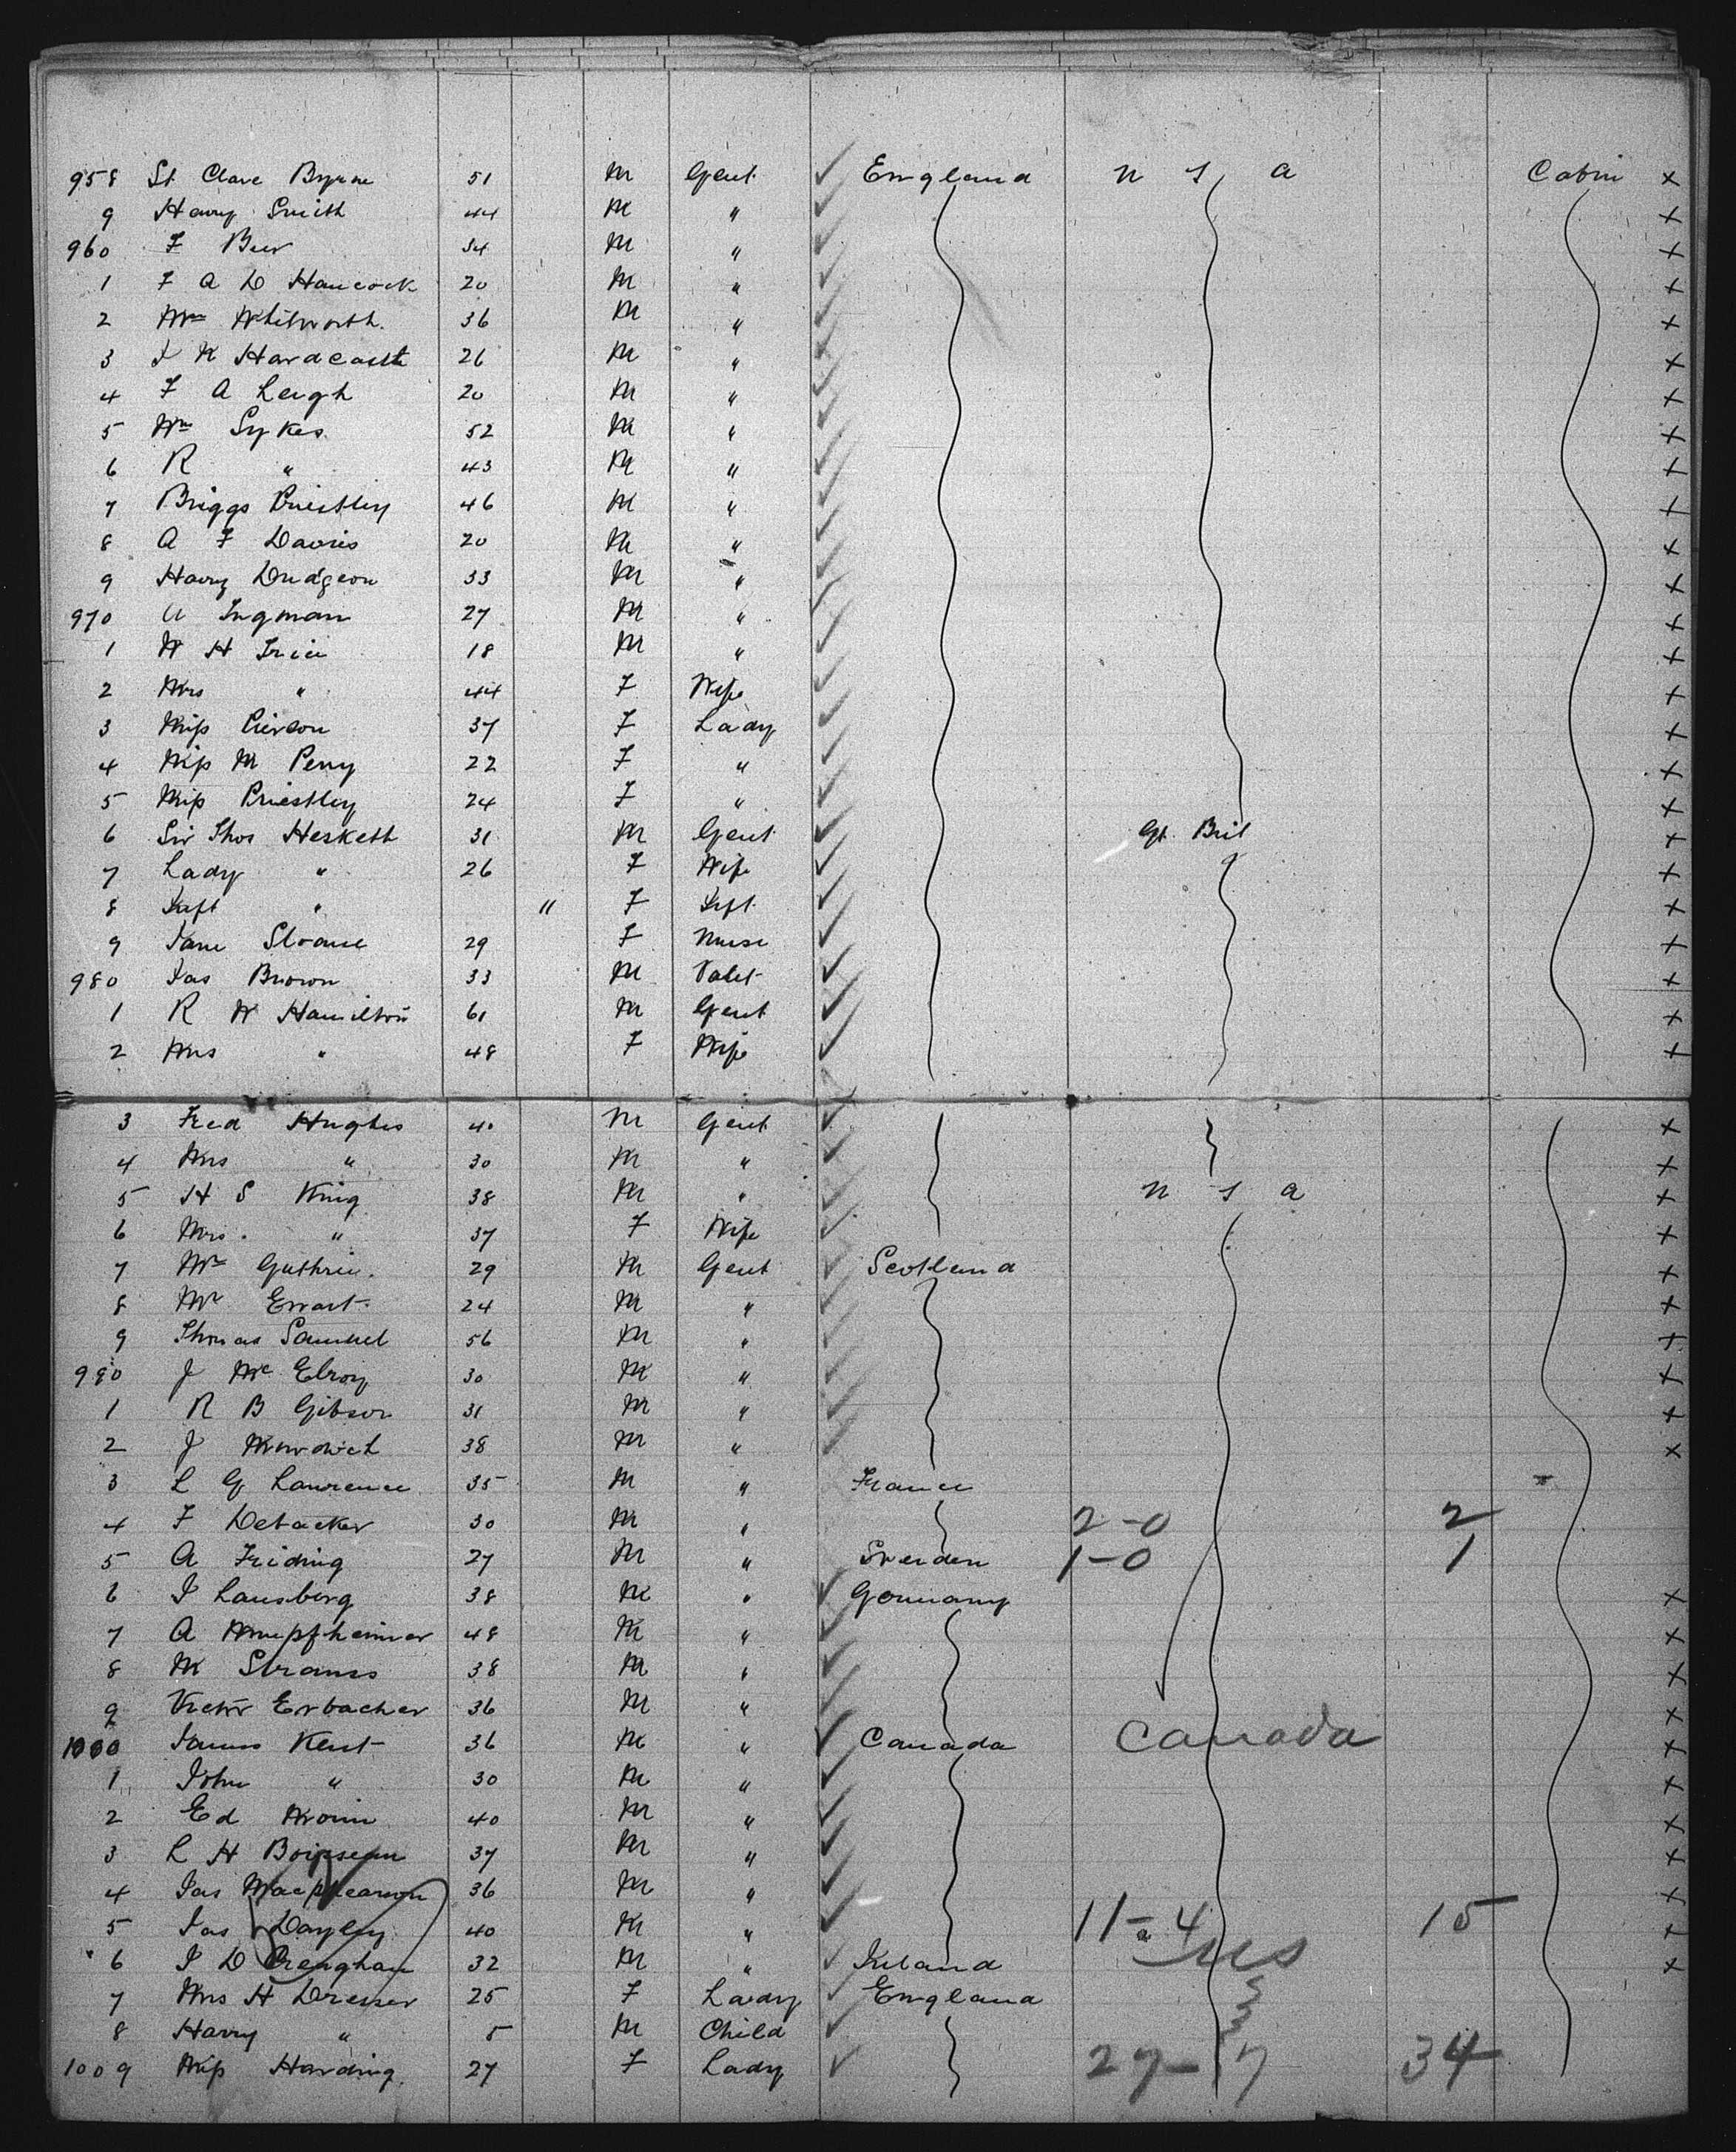 958 St Clare Byrne 51 M Gent England U S A Cabin x
9 Harry Smith 44 M " x
960 F Beer 34 M " x
1 F A D Hancock 20 M " x
2 Wm Whitworth. 36 M " x
3 J K Hardcastle 26 M " x
4 F A Leigh 20 M " x
5 Wm Sykes 52 M " x
6 R " 43 M " x
7 Briggs Priestley 46 M " x
8 A F Davis 20 M " x
9 Harry Dudgeon 33 M " x
970 A Ingman 27 M " x
1 W H 18 M " x
2 Mrs " 44 F Wife x
3 Miss 37 F Lady x
4 Miss M Perry 22 F " x
5 Miss Priestley 24 F " x
6 Sir Thos Hesketh 31 M Gent Gt Brit x
7 Lady " 26 F Wife x
8 Inft " " F Inft x
9 Jane Sloane 29 F Nurse x
980 Jas Brown 33 M Valet x
1 R W Hamilton 61 M Gent x
2 Mrs " 48 F Wife x
3 Fred Hughes 40 M Gent x
4 Mrs " 30 M " x
5 H S King 38 M " U S A x
6 Mrs. " 37 F Wife x
7 Guthrie. 29 M Gent Scotland x
8 Mr Ewart. 24 M " x
9 Thomas Samuel 56 M " x
990 J Mc Elroy 30 M " x
1 R B Gibson 31 M " x
2 J 38 M " x
3 L G Lawrence 35 M " France
4 F Debacker 30 M " 2-0 2
5 A 27 M " Sweden 1-0 1
6 I Lansberg 38 M " Germany x
7 A 48 M " x
8 M Strauss 38 M " x
9 Victor Erbacher 36 M " x
1000 James Kent 36 M " Canada Canada x
1 John " 30 M " x
2 Ed 40 M " x
3 L H Boisseau 37 M " x
4 Jas Macphearson 36 M " x
5 Jas Dayley 40 M " 11-4 15 x
6 J D 32 M " Ireland US x
7 Mrs H Dresser 25 F Lady England
8 Harry " 5 M Child
1009 Miss Harding. 27 F Lady 27-7 34